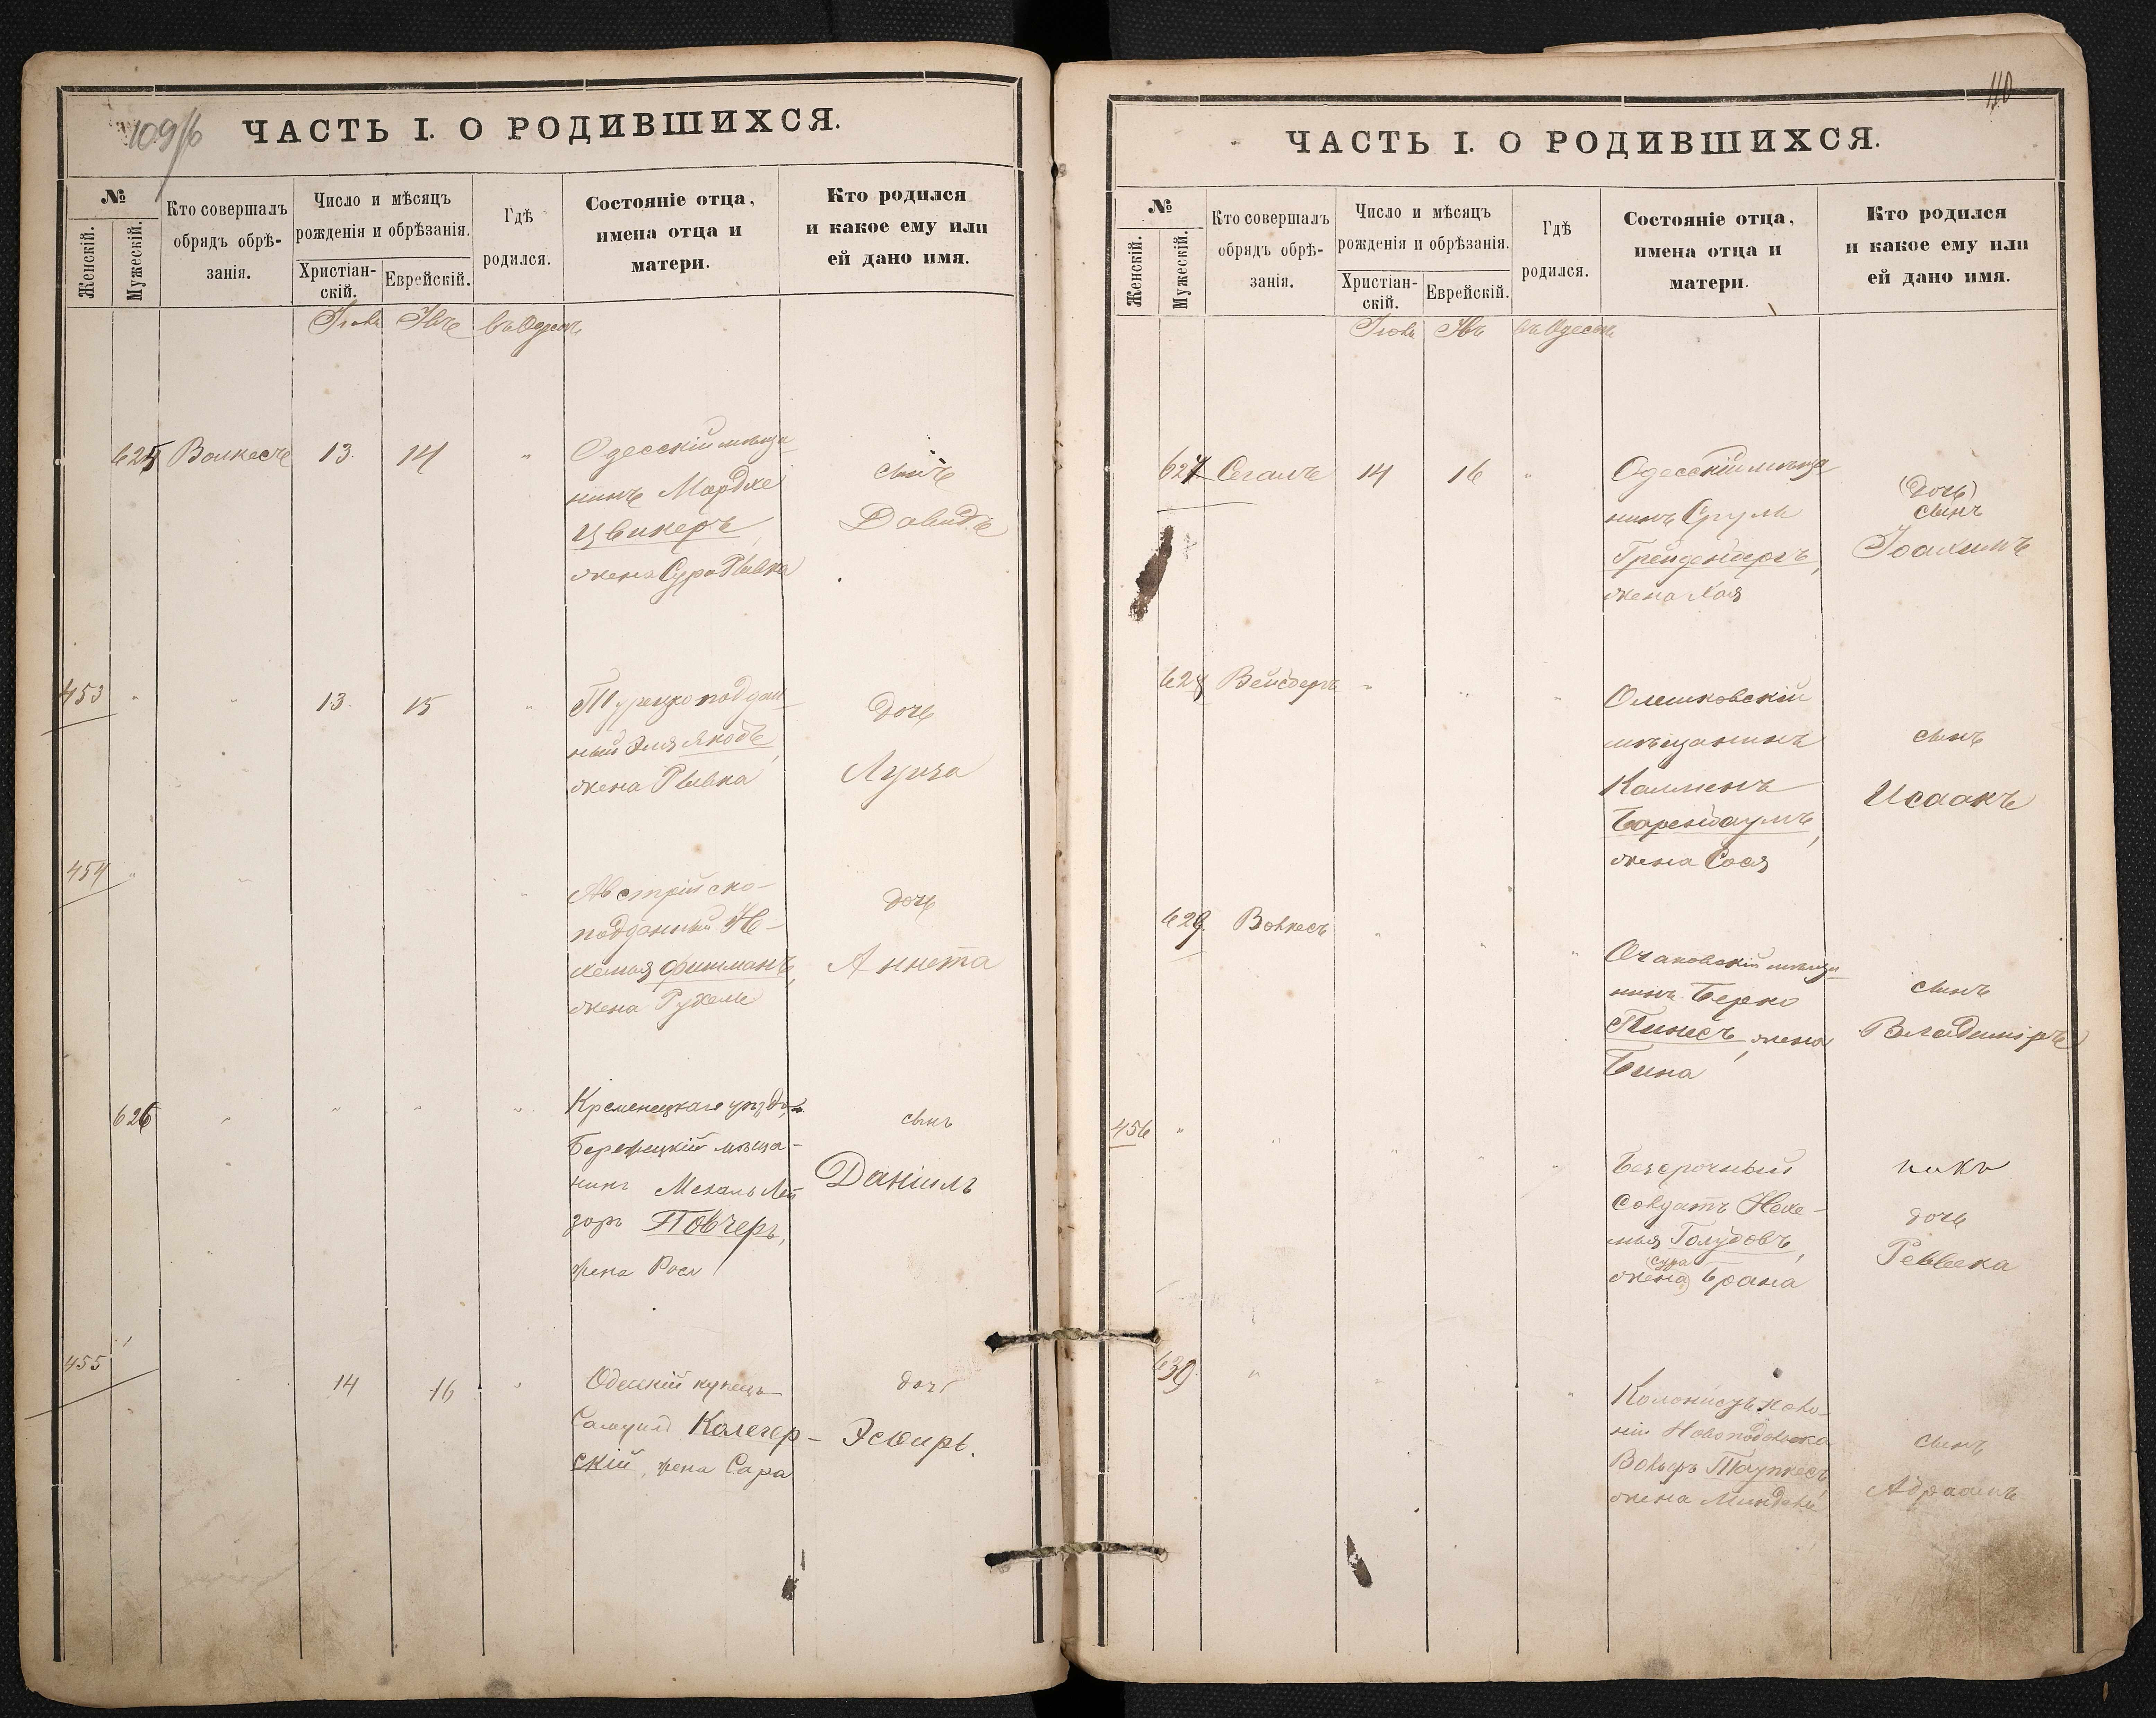 109/б
ЧАСТЬ I. О РОДИВШИХСЯ.
№
Женскій.
Мужескій.
Кто совершалъ
обрядъ обрѣ-
занія.
Число и мѣсяцъ
рожденія и обрѣзанія.
Христіан-
скій.
Еврейскій.
Гдѣ
родился.
Состояніе отца,
имена отца и
матери.
Кто родился
и какое ему или
ей дано имя.
въ Одессѣ
625 Волкесъ 13. 14 "
Одесскій мѣща
нинъ Мордке
Цвикеръ,
жена Сура Ривка
сынъ
Давидъ
453 " " 13. 15 "
Турецко поддан
ный Эля Якобъ,
жена Ривка
дочь
Луиза
454 "
Австрійско-
подданный Не-
хемья Фишманъ,
жена Рухель
дочь
Аннета
626
Кременецкаго уѣзда,
мѣща-
нинъ
зоръ Повчеръ,
жена
сынъ
Даніилъ
455 14 16 "
Одесскій купецъ
Самуилъ Калегер-
скій, жена Сара
дочь
Эсѳирь.
110
ЧАСТЬ I. О РОДИВШИХСЯ.
№
Женскій.
Мужескій.
Кто совершалъ
обрядъ обрѣ-
занія.
Число и мѣсяцъ
рожденія и обрѣзанія.
Христіан-
скій.
Еврейскій.
Гдѣ
родился.
Состояніе отца,
имена отца и
матери.
Кто родился
и какое ему или
ей дано имя.
въ Одессѣ
627 Сегалъ 14 16 "
Одесскій мѣща
нинъ Сруль
Грейденбергъ,
жена Хая
(дочь)
сынъ
Іоакимъ
628 Вейсбергъ " " "
Олешковскій
мѣщанинъ
Калменъ
Боренбаумъ,
жена Сося
сынъ
Исаакъ
629. Волкесъ " " "
Очаковскій мѣща
нинъ Берко
Пинесъ, жена
Бина
сынъ
Владиміръ
456 " " " " "
Безсрочный
Солдатъ Нехе-
мья Голубовъ,
(Сура
жена) Брана
дочь
Ревекка
630 " "
Колонистъ коло-
ніи Новоподольска
Вольфъ
жена Миндель
сынъ
Абрамъ